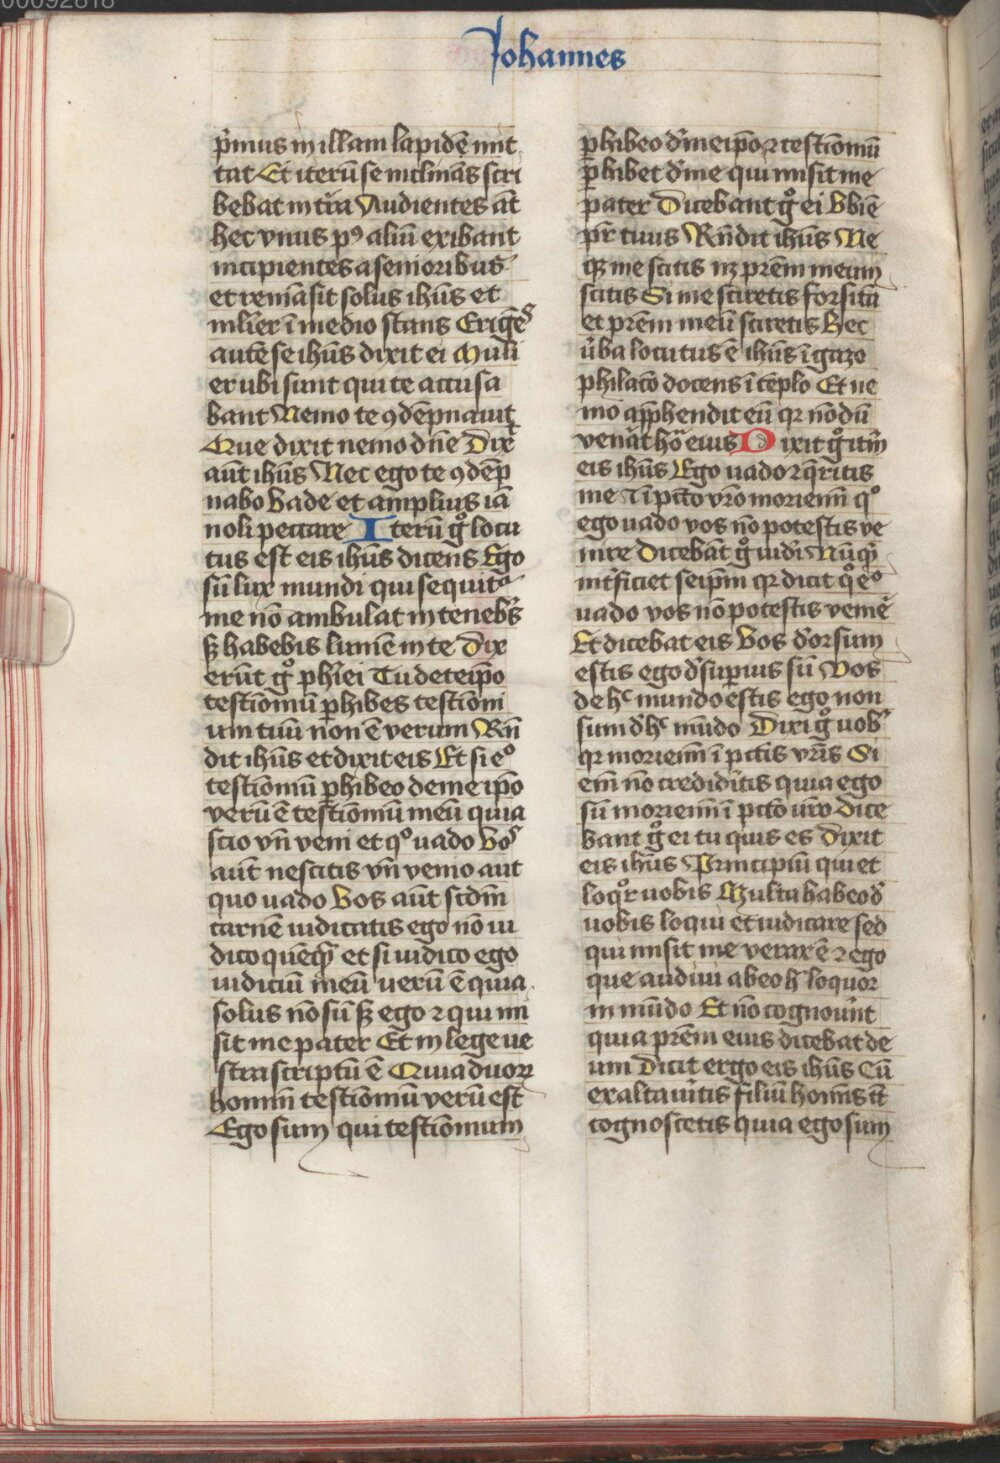 00092818
Johannes
p̄mus in illam lapidē mit
tat Et iterū se inclinās scri
bebat in tr̄a Audientes aūt
hec vnus pꝰ aliū exibant
incipientes a senioribus
et remāsit solus ihūs et
mlīer ī medio stans Erigēs
autē se ihūs dixit ei Muli
er ubi sunt qui te accusa
bant Nemo te ꝯdēpnauit
Que dixit nemo dn̄e Dix
aūt ihūs Nec ego te ꝯdēp
nabo Vade et amplius iā
noli peccare Iterū gͦ locu
tus est eis ihūs dicens Ego
sū lux mundi qui sequitᷣ
me nō ambulat in tenebris
sꝫ habebis lumē in te Dix
erūt gͦ pharīei Tu de te ip̄o
testīomū ꝑhibes testīoni
um tuū non ē verum Rn̄
dit ihūs et dixit eis Et si eͦ
testīomū ꝑhibeo de me ip̄o
verū ē testīomū meū quia
scio vn̄ veni et qͦ uado Vos
aūt nescitis vn̄ venio aut
quo uado Vos aūt scdm̄
carnē iudicatis ego nō iu
dico quēqᷓ et si iudico ego
iudiciū meū uerū ē quia
solus nō sū sꝫ ego ⁊ qui mi
sit me pater Et in lege ue
stra scriptū ē Quia duoꝝ
homin̄ testīomū verū est
Ego sum qui testīomum
ꝑhibeo d̄ me ip̄o ⁊ testīomū
ꝑhibet d̄ me qui misit me
pater Dicebant gͦ ei Vbi ē
pr̄ tuus Rn̄dit ihūs Ne
qꝫ me scitis nꝫ prēm meum
scitis Si me sciretis forsitā
et prēm meū sciretis Hec
ūba locutus ē ihūs ī gazo
philatō docens ī tēplo Et ne
mo apꝑhendit eū qꝛ nōdū
venāt hōͣ eius Dixit gͦ itm̄
eis ihūs Ego uado ⁊ qᷓritis
me ⁊ ī pctō vr̄o moriemī qͦ
ego uado vos nō potestis ve
nire Dicebāt gͦ iudī Nūqᷓ
int̄ficiet seip̄m qꝛ dicit qͦ eͦ
uado vos nō potestis venīe
Et dicebat eis Vos d̄orsum
estis ego d̄ suꝑius sū Vos
de hͨ mundo estis ego non
sum d̄ hͨ mūdo Dixi gͦ uobᷤ
qꝛ moriemī ī pctīs vrīs Si
em̄ nō credidītis quia ego
sū moriemī ī pctō ur̄o Dice
bant gͦ ei tu quis es Dixit
eis ihūs Principiū qui et
loqͦr uobis Multa habeo d̄
uobis loqui et iudicare sed
qui misit me verax ē ⁊ ego
que audiui ab eo hͨ loquor
in mūdo Et nō cognouūt
quia prēm eius dicebat de
um Dicit ergo eis ihūs Cū
exaltauītis filiū homīs tc̄
cognoscetis quia ego sum